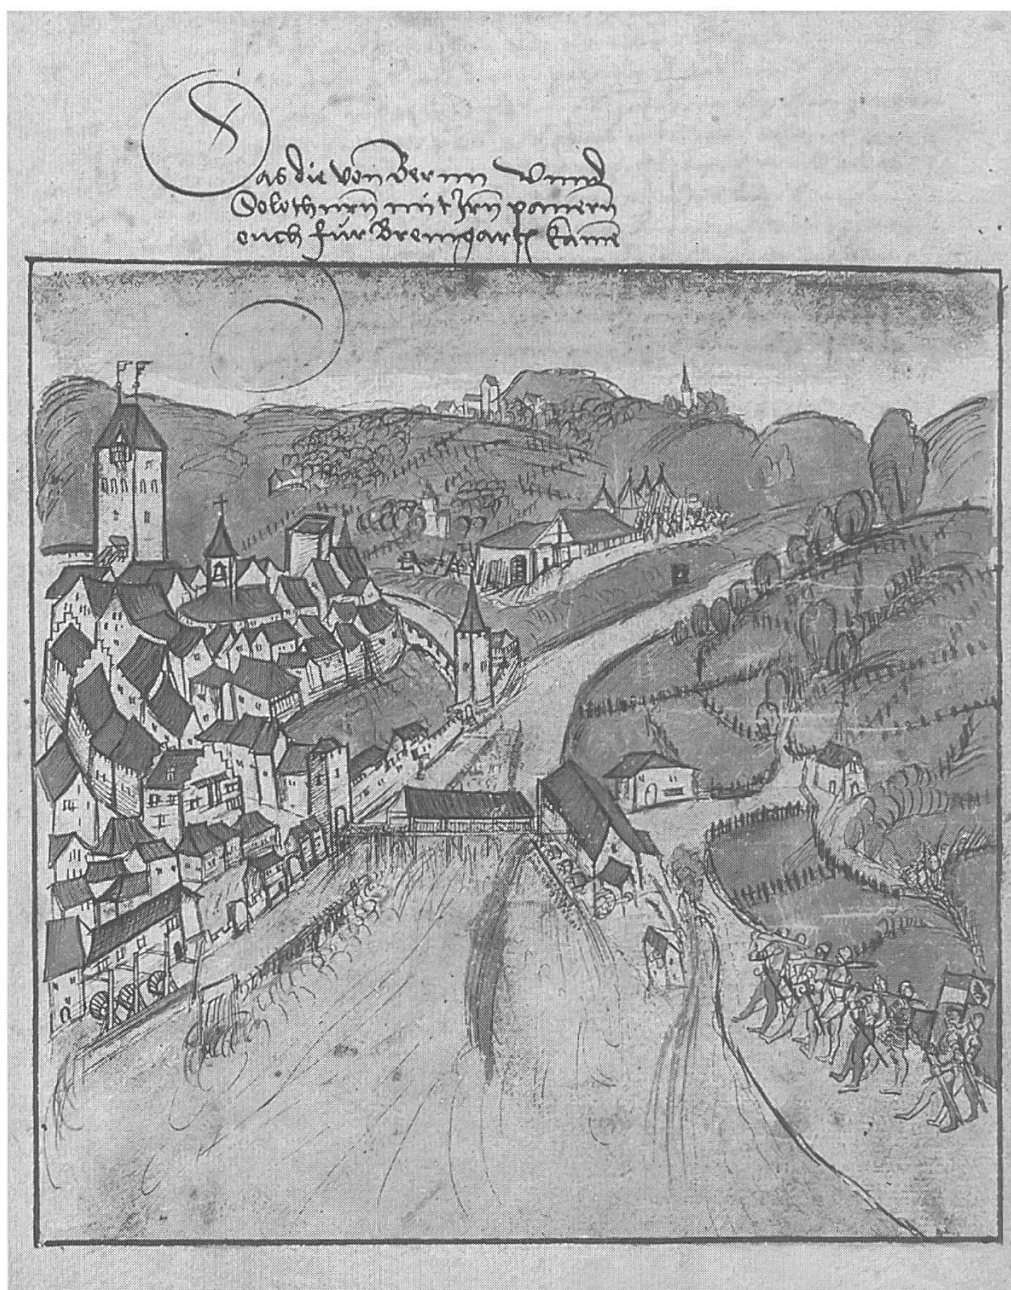 Das die von Bernn Vnnd
Solothurn mit Jrn panern
ouch für Bremgartn kamē